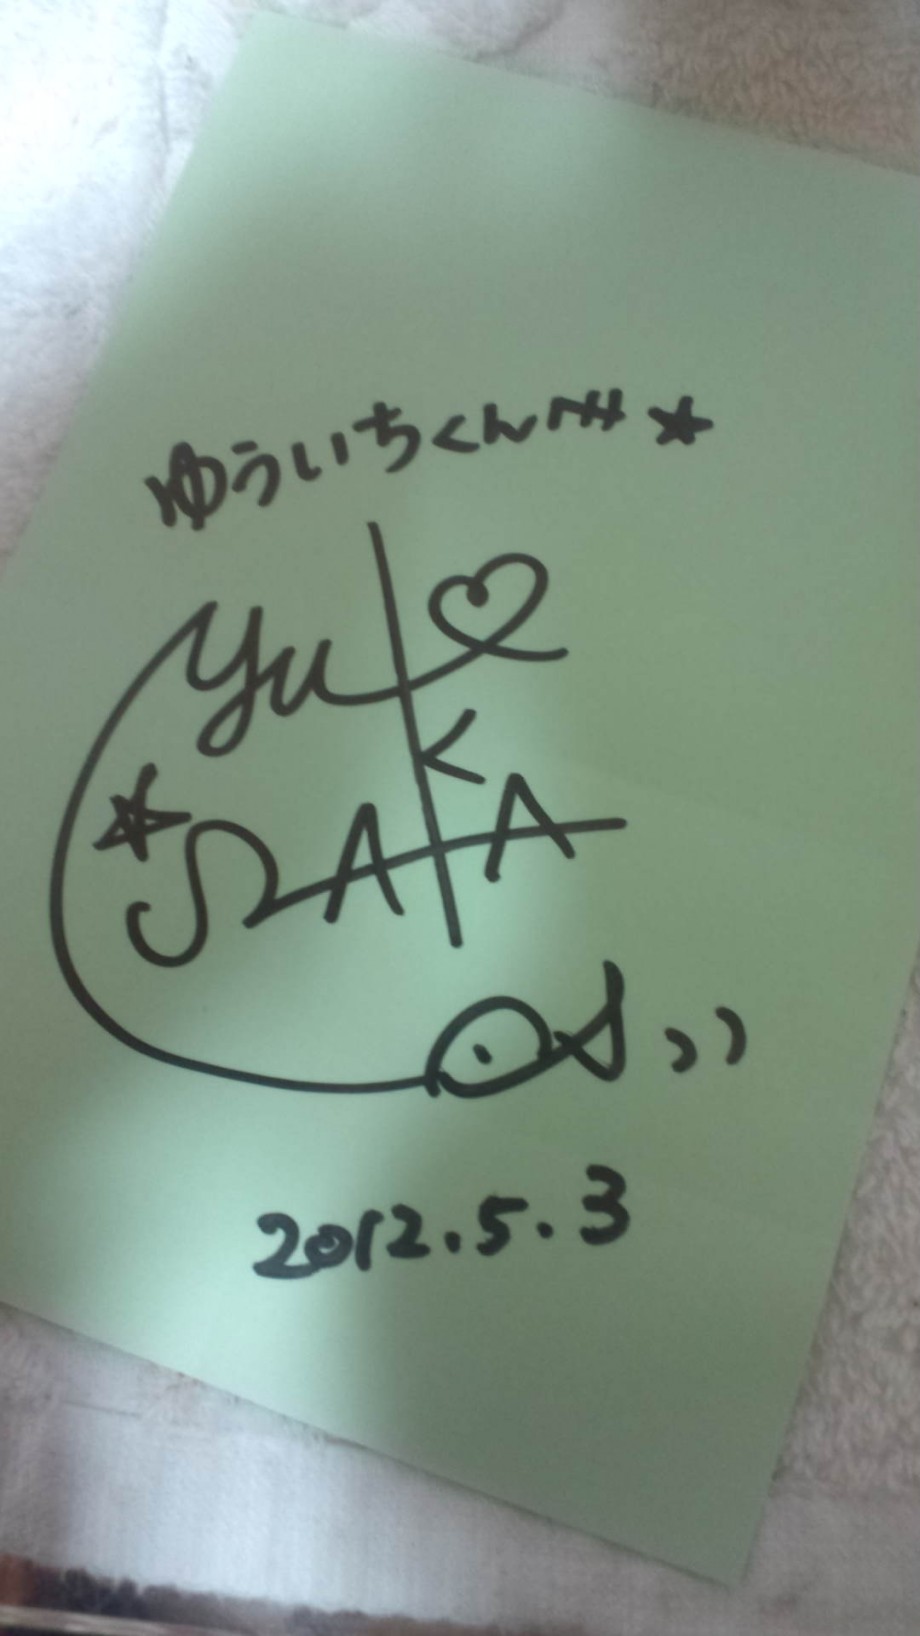 ゆういちくんへ★
Yu
K
SAKA
2012.5.3